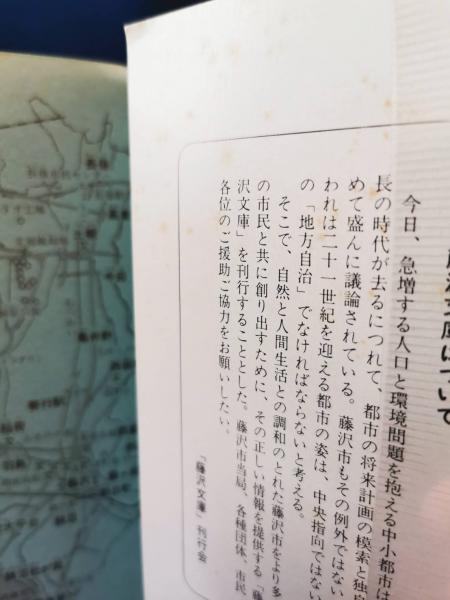 藤沢文庫について
今日、急増する人口と環境問題を抱える中小都市は
長の時代が去るにつれて、都市の将来計画の模索と独自
めて盛んに議論されている。藤沢市もその例外ではない
われは二十一世紀を迎える都市の姿は、中央指向ではない
の「地方自治」でなければならないと考える。
そこで、自然と人間生活との調和のとれた藤沢市をより多
の市民と共に創り出すために、その正しい情報を提供する「藤
沢文庫」を刊行することとした。藤沢市当局、各種団体、市民
各位のご援助ご協力をお願いしたい。
「藤沢文庫」刊行会